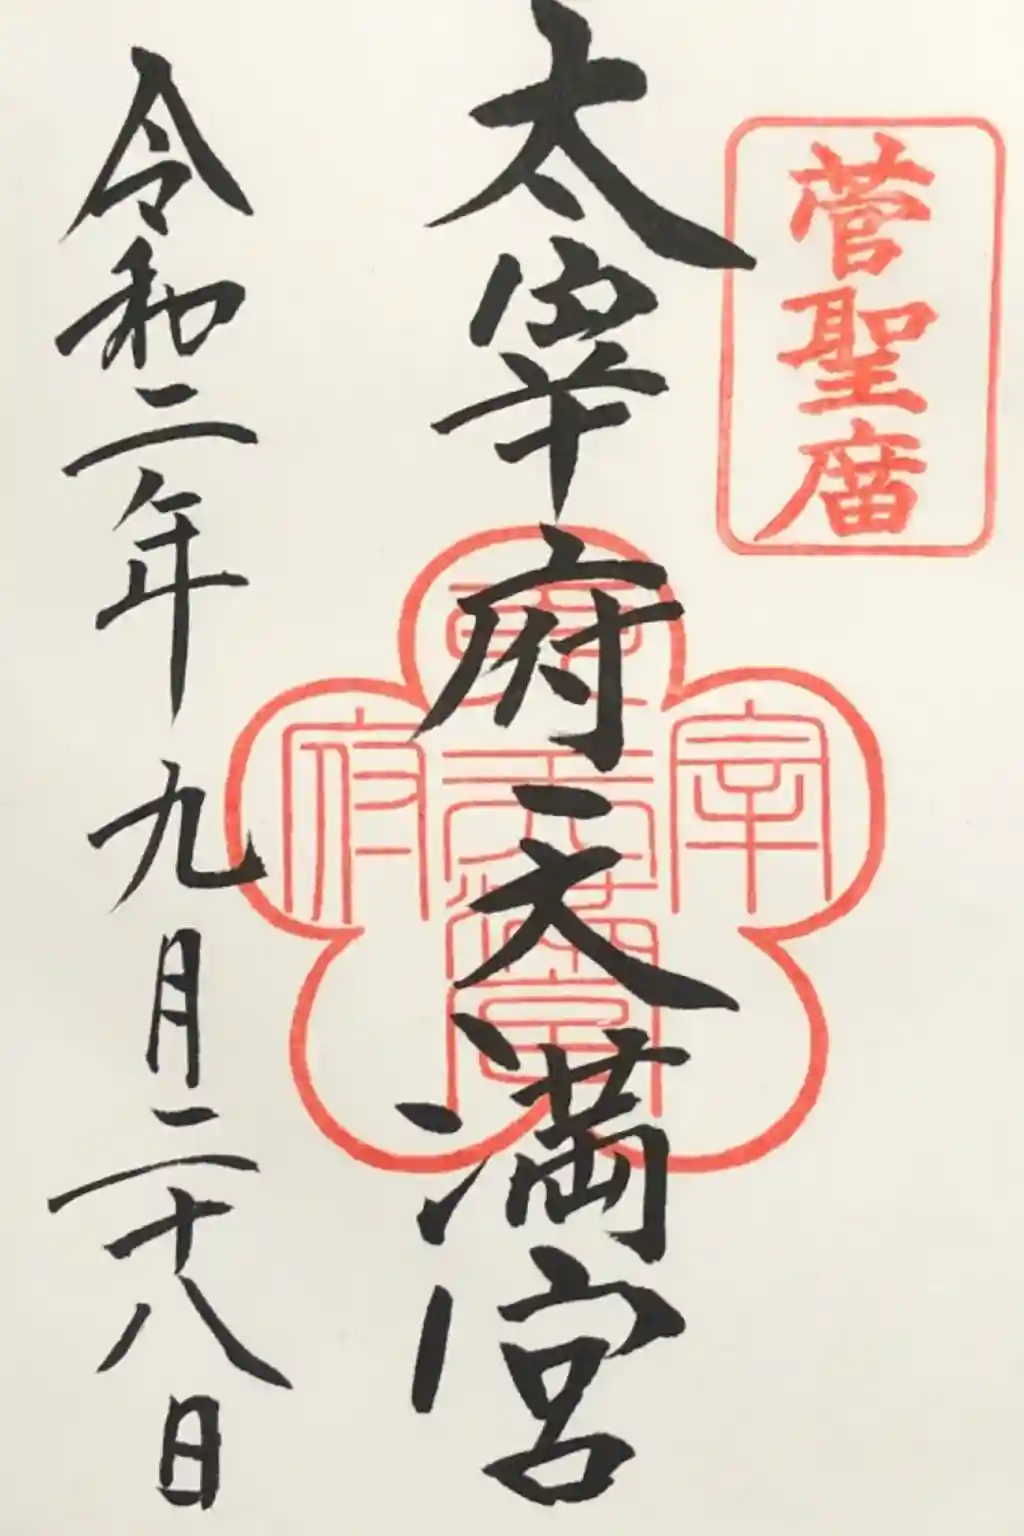 菅聖庿
太宰府天満宮
令和二年九月二十八日
宰府
天満宮